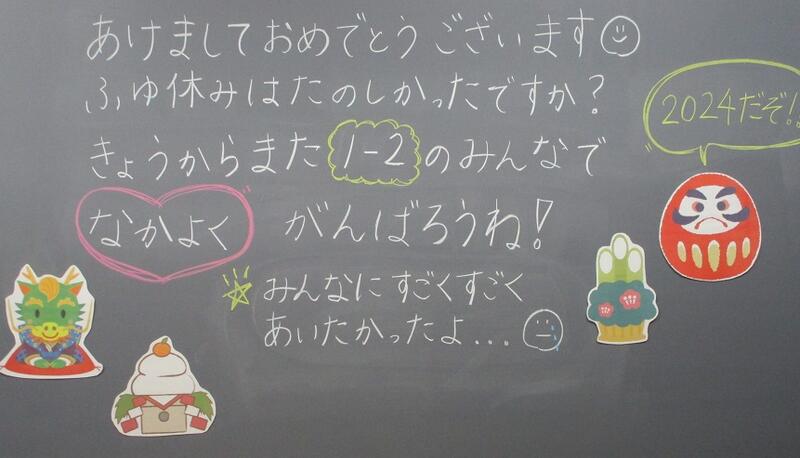 あけましておめでとうございます
ふゆ休みはたのしかったですか?
2024だぞ!!
きょうからまた1-2のみんなで
なかよく がんばろうね!
みんなにすごくすごく
あいたかったよ...